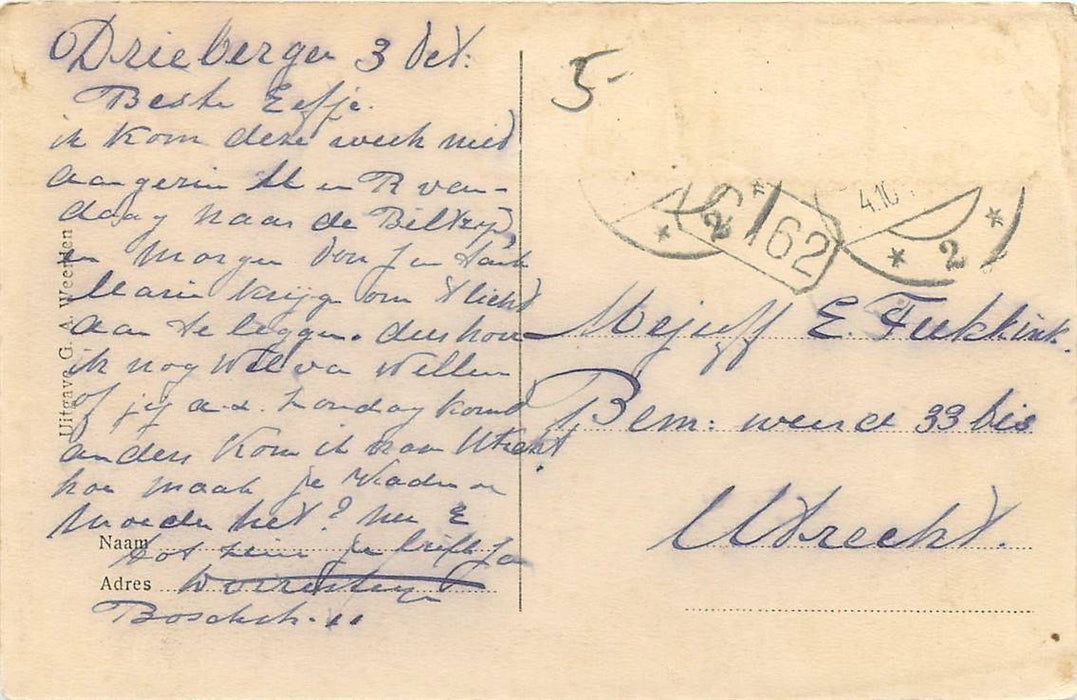 Driebergen 3 Oct.
Beste Eefje.
ik kom deze week niet
M en R van-
daag naar de Biltstr,
en morgen Jan Tante
Marie krijgen om 't licht
aan te leggen. dus hoor
ik nog wel van Willem
of jij a.s. Zondag komt
anders kom ik naar Utrecht.
hoe maak je Vader en
Moeder het? nu E
Naam tot ziens je liefh
Adres
Boschstr. 11
Uitgave G. A. Weersen
5-
4.10
2
2
62
Mejuff E. Fukkink.
Bem: weerd 33 bis
Utrecht.